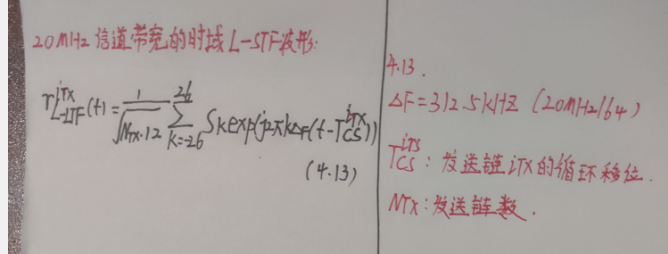 20MHz 信道带宽的时域 L-STF波形:
r_{L-LTF}^{iTX}(t) = \frac{1}{\sqrt{N_{TX}·12}} \sum_{K=-26}^{26} S_K exp(j2πkΔF(t-T_{CS}^{iTX}))
(4.13)
4.13.
ΔF=312.5kHz (20MHz/64)
T_{CS}^{iTS}: 发送链iTX的循环移位.
NTX: 发送链数.